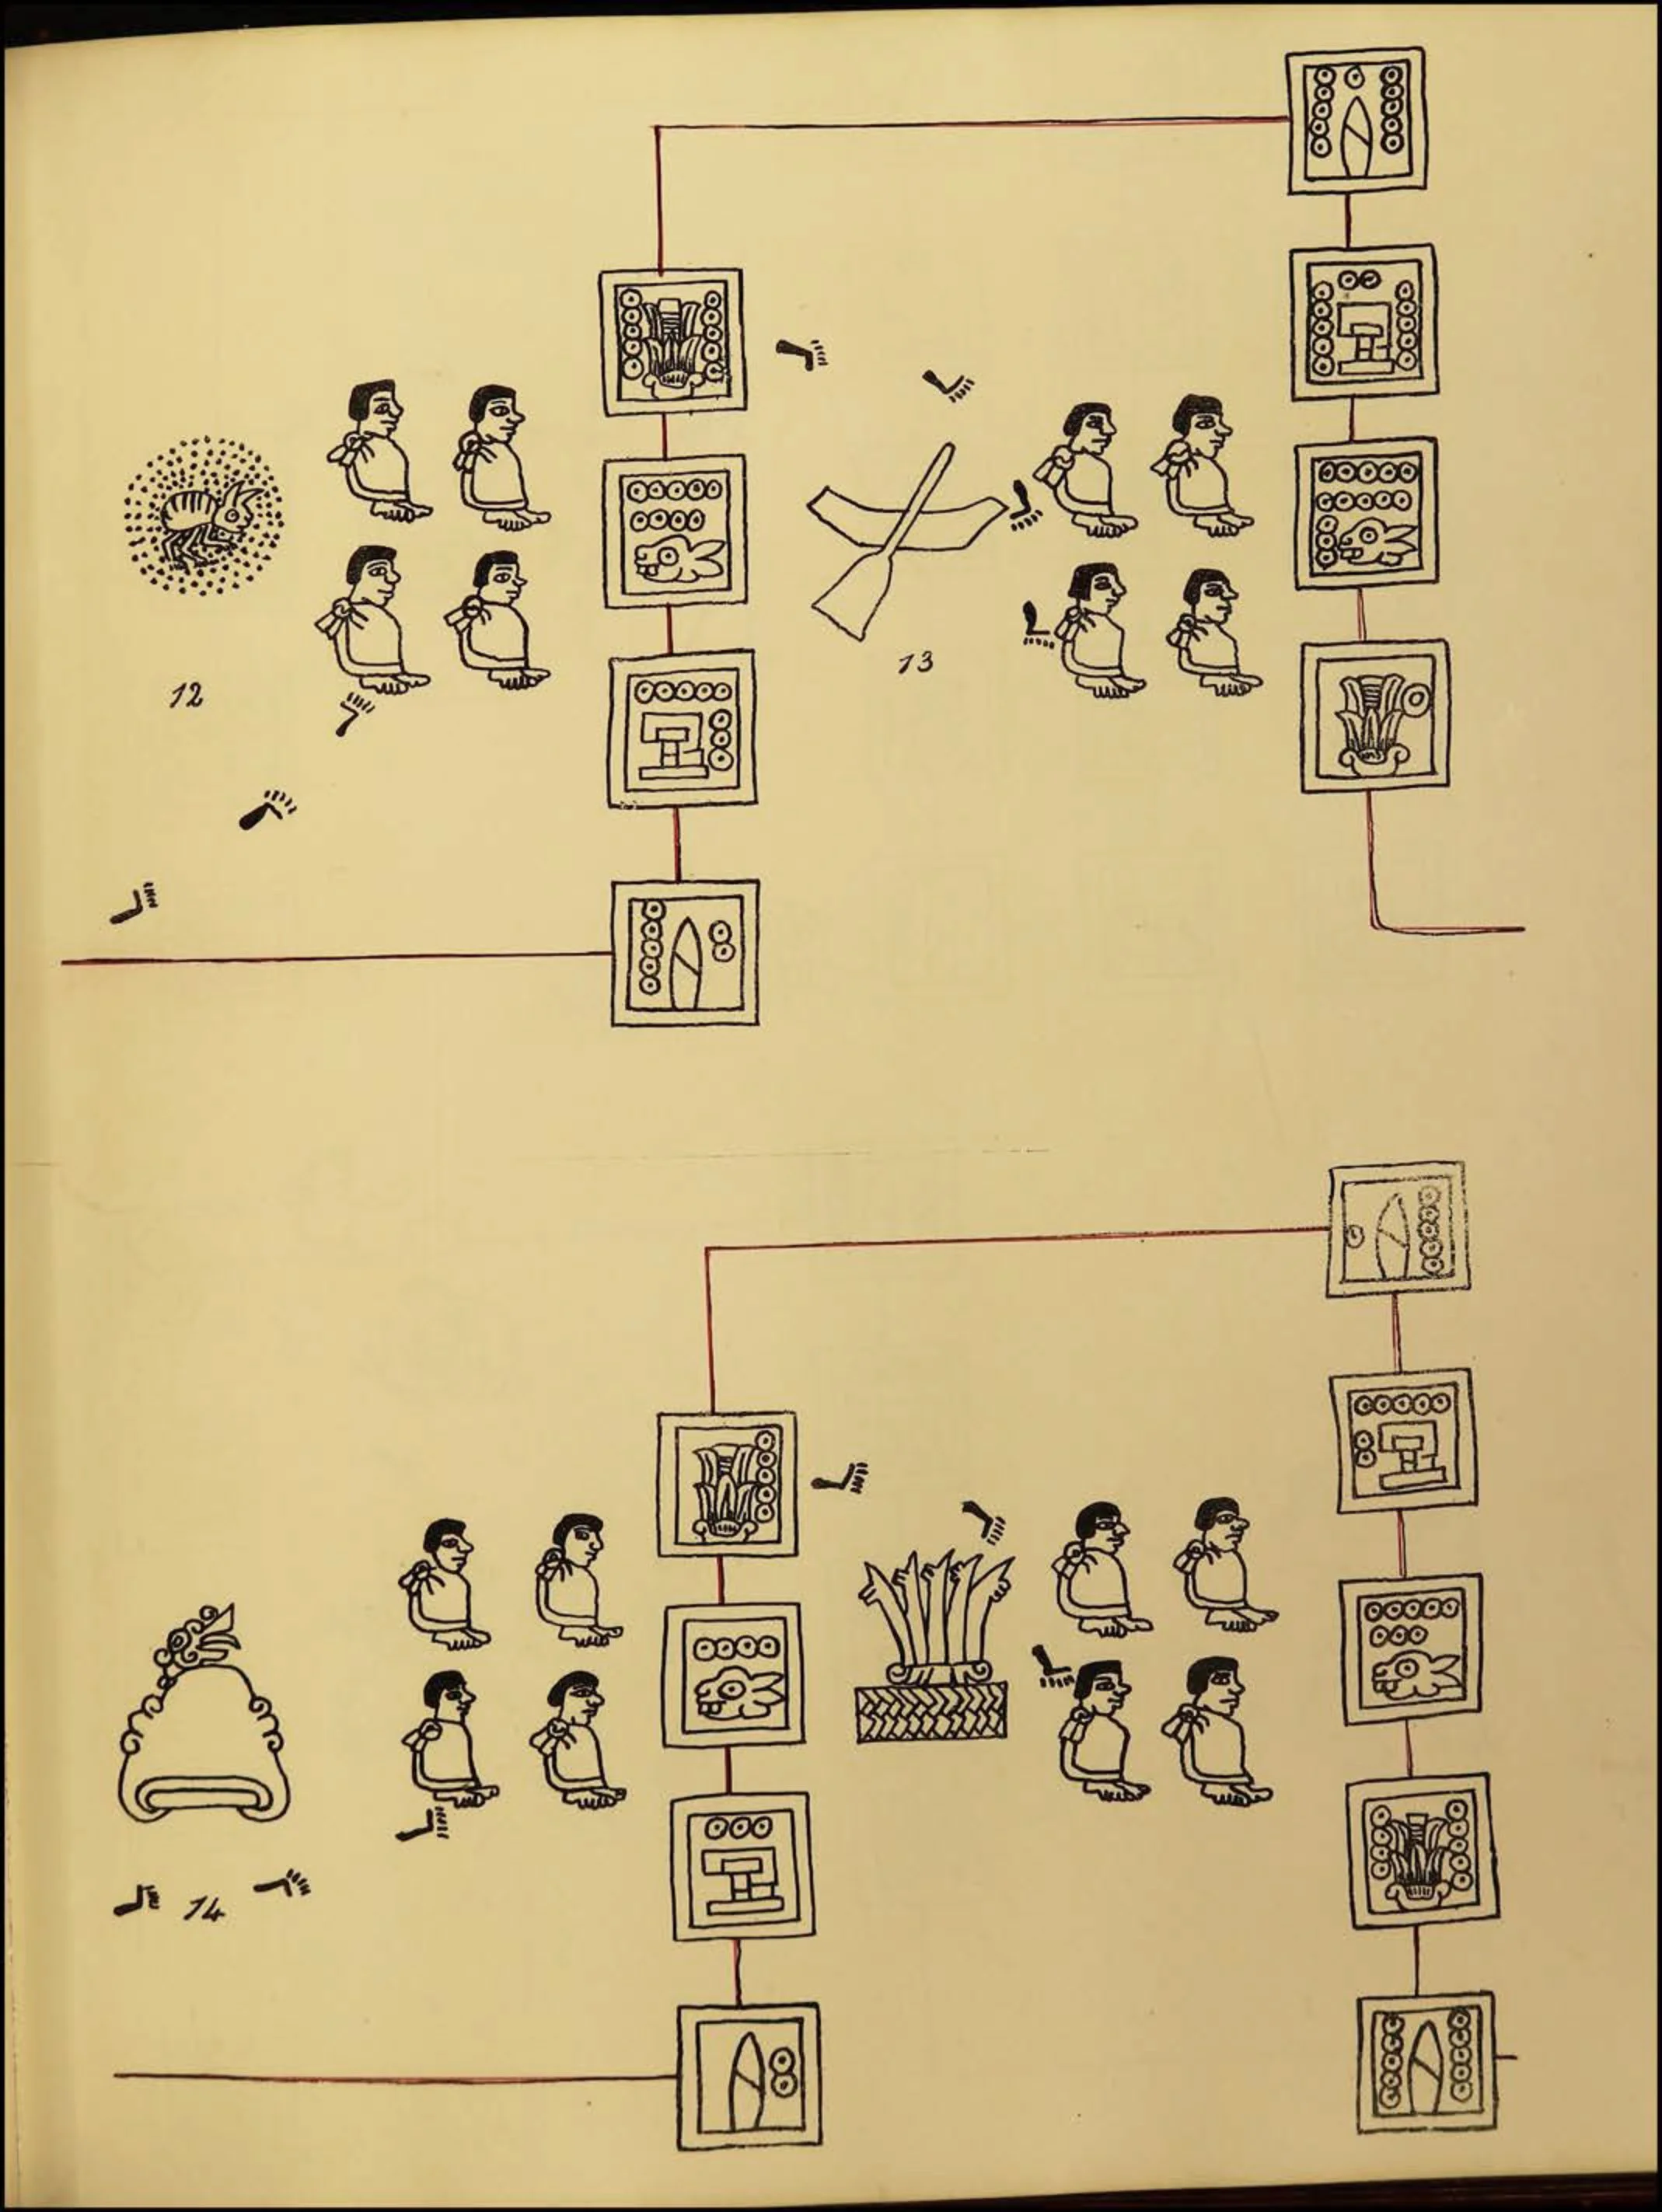 12
13
14